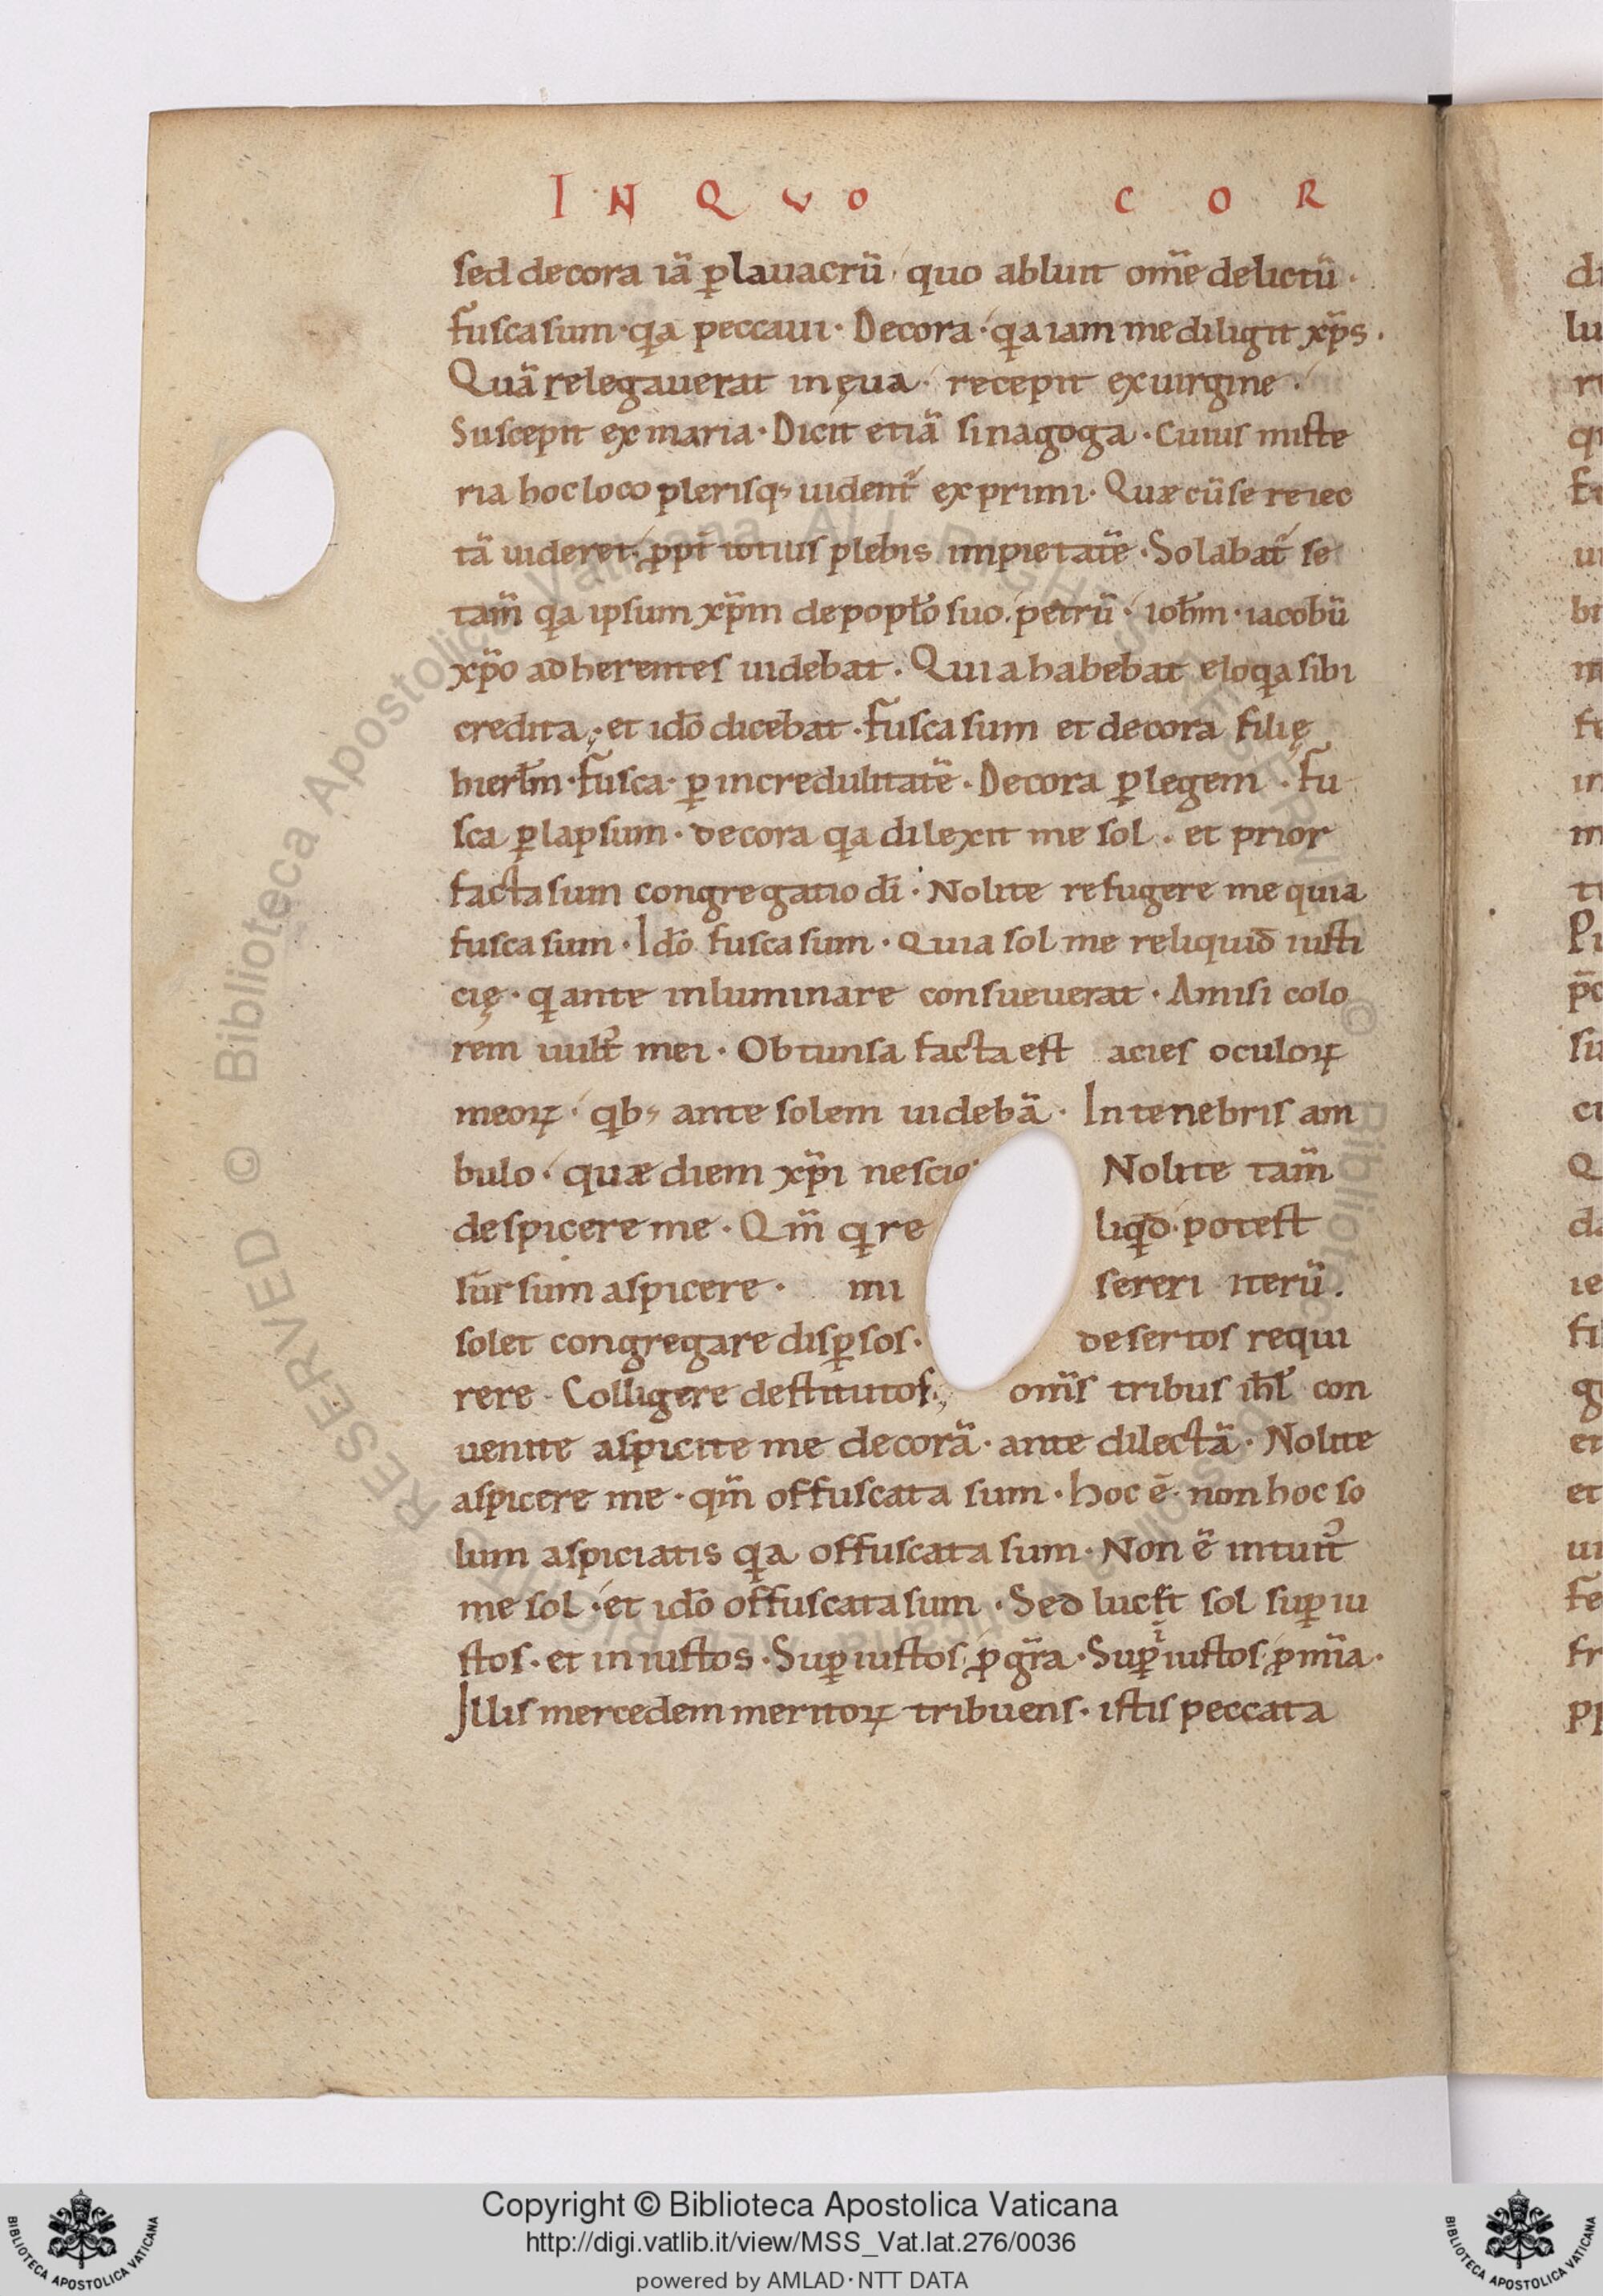 IN QVO COR
sed decora iā p̱ lauacrū quo abluit om̄e delictū ·
fusca sum · qa peccaui · Decora · qa iam me diligit xp̄s ·
Quā relegauerat in ęua · recepit ex uirgine ·
Suscepit ex maria · Dicit etiā sinagoga · Cuius miste
ria hoc loco plerisq; uident᷑ exprimi · Quæ cū se reiec
tā uideret · ꝓpt̄ totius plebis impietatē · Solabat᷑ se
tam̄ qa ipsum xp̄m de poplo suo · petrū · ioh̄m · iacobū
xp̄o adherentes uidebat · Quia habebat eloqa sibi
credita · et id̄o dicebat · fusca sum et decora filię
hierłm · fusca · ꝑ incredulitatē · Decora ꝑ legem · fu
sca ꝑ lapsum · decora qa dilexit me sol · et prior
facta sum congregatio dī · Nolite refugere me quia
fusca sum · Id̄o fusca sum · Quia sol me reliquid iusti
cię · q ante inluminare consueuerat · Amisi colo
rem uult᷑ mei · Obtunsa facta est acies oculoꝝ
meoꝝ · qb; ante solem uidebā · In tenebris am
bulo · quæ diem xp̄i nescio · Nolite tam̄
despicere me · Qm̄ q re liqd · potest
sursum aspicere · mi sereri iterū ·
solet congregare disꝑsos · desertos requi
rere · Colligere destitutos · om̄s tribus ihl̄ con
uenite aspicite me decorā · ante dilectā · Nolite
aspicere me · qm̄ offuscata sum · hoc ē · non hoc so
lum aspiciatis qa offuscata sum · Non ē intuit᷑
me sol · et id̄o offuscata sum · Sed lucet sol suꝑ iu
stos · et iniustos · Suꝑ iustos ꝓ gr̄a · Suꝑ iiustos ꝓ mīa ·
Illis mercedem meritoꝝ tribuens · istis peccata
Copyright © Biblioteca Apostolica Vaticana
http://digi.vatlib.it/view/MSS_Vat.lat.276/0036
powered by AMLAD·NTT DATA